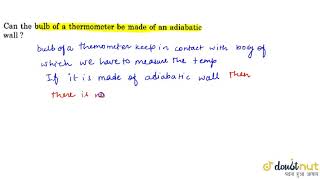 Can the bulb of a thermometer be made of an adiabatic
wall ?
bulb of a themometer keep in contact with body of
which we have to measure the temp
If it is made of adiabatic wall then
there is n
doubtnut
पढ़ना हुआ आसान